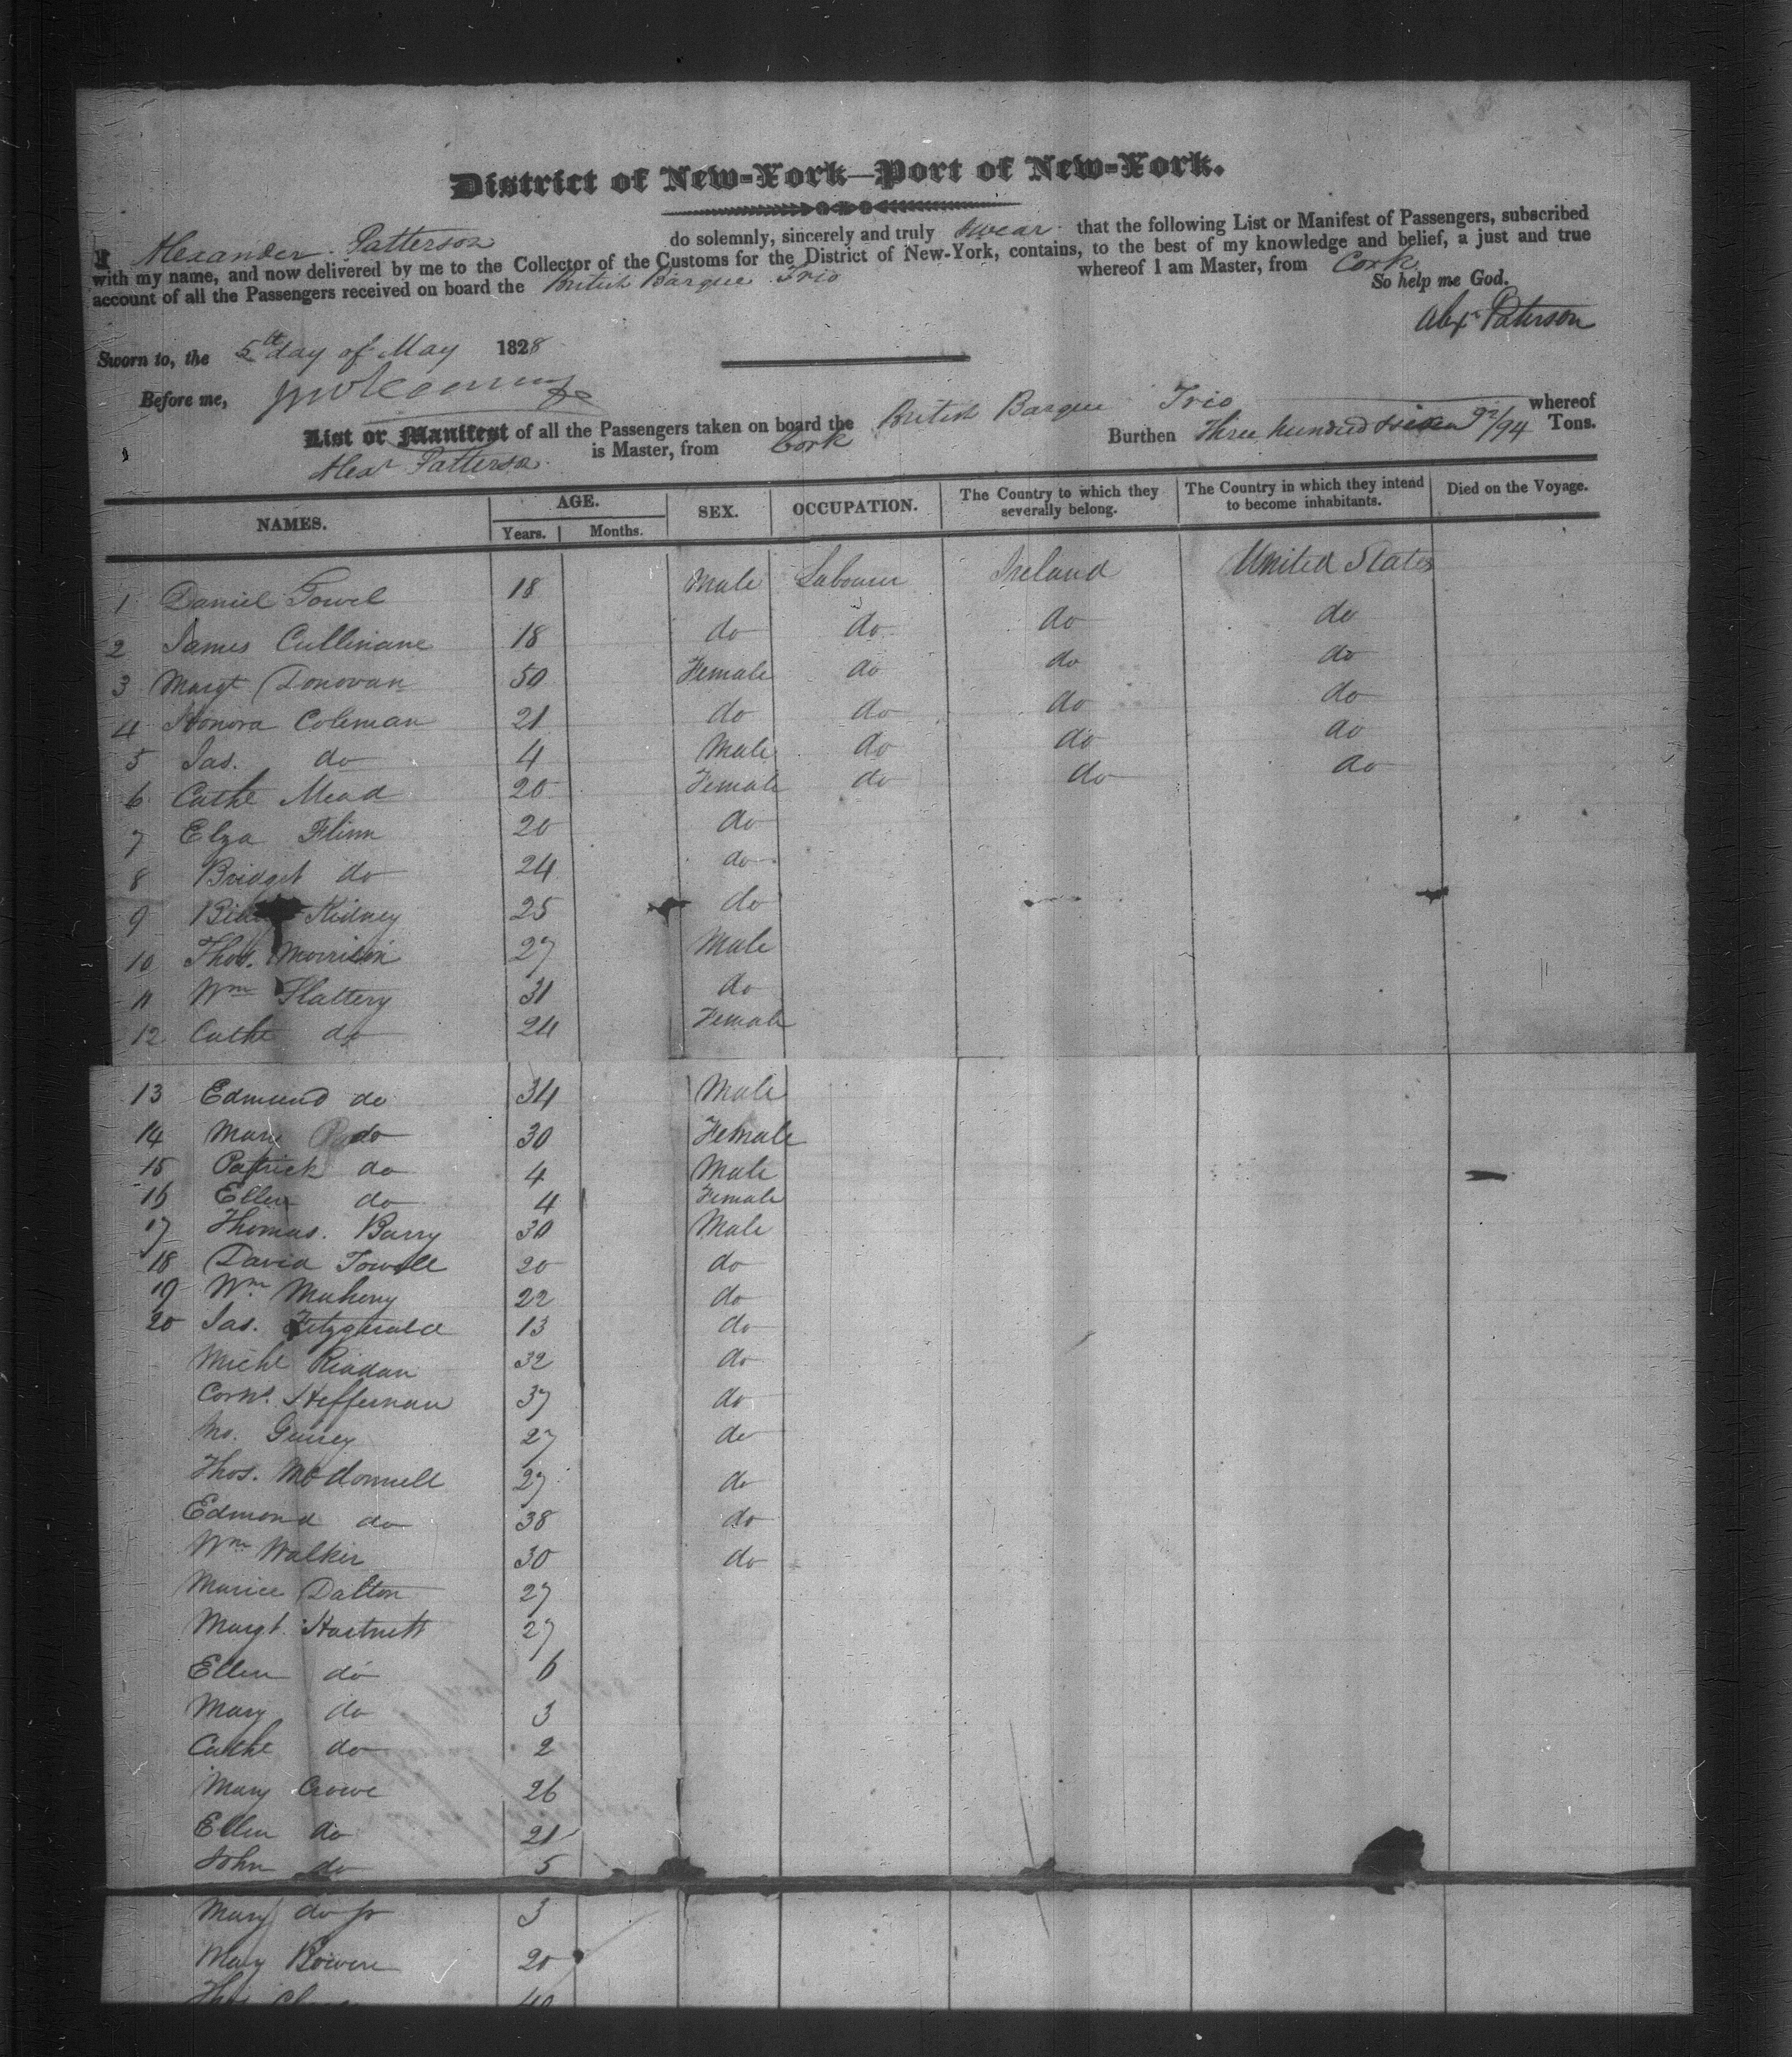 District of New-York—Port of New-York.
I Alexander Patterson do solemnly, sincerely and truly swear that the following List or Manifest of Passengers, subscribed
with my name, and now delivered by me to the Collector of the Customs for the District of New-York, contains, to the best of my knowledge and belief, a just and true
account of all the Passengers received on board the British Barque Trio whereof I am Master, from Cork
So help me God.
Alexr Paterson
Sworn to, the 5th day of May 1828
Before me,
List or Manifest of all the Passengers taken on board the British Barque Trio whereof
Alexr Patterson is Master, from Cork Burthen Three hundred 92/94 Tons.
NAMES. AGE. SEX. OCCUPATION. The Country to which they severally belong. The Country in which they intend to become inhabitants. Died on the Voyage.
Years. Months.
1 Daniel Towel 18 Male Labourer Ireland United States
2 James Cullinane 18 do do do do
3 Margt Donovan 50 Female do do do
4 Honora Coleman 21 do do do do
5 Jas. do 4 Male do do do
6 Cathe Mead 20 Female do do do
7 Elza Flinn 20 do
8 Bridget do 24 do
9 Kidney 25 do
10 Thos. Morrison 27 Male
11 Wm Slattery 31 do
12 Cathe do 24 Female
13 Edmund do 34 Male
14 Mary do 30 Female
15 Patrick do 4 Male
16 Ellen do 4 Female
17 Thomas. Barry 30 Male
18 David Towell 20 do
19 Wm Mahony 22 do
20 Jas. Fitzgerald 13 do
Michl Riadan 32 do
Corns. Heffernan 37 do
27 do
Thos. McDonnell 27 do
Edmond do 38 do
Wm Walker 30 do
Maurice Dalton 27
Margt. Hartnett 27
Ellen do 6
Mary do 3
Cathe do 2
Mary Crowe 26
Ellen do 21
John do 5
Mary do jr 3
Mary Bowen 20
Thos 40